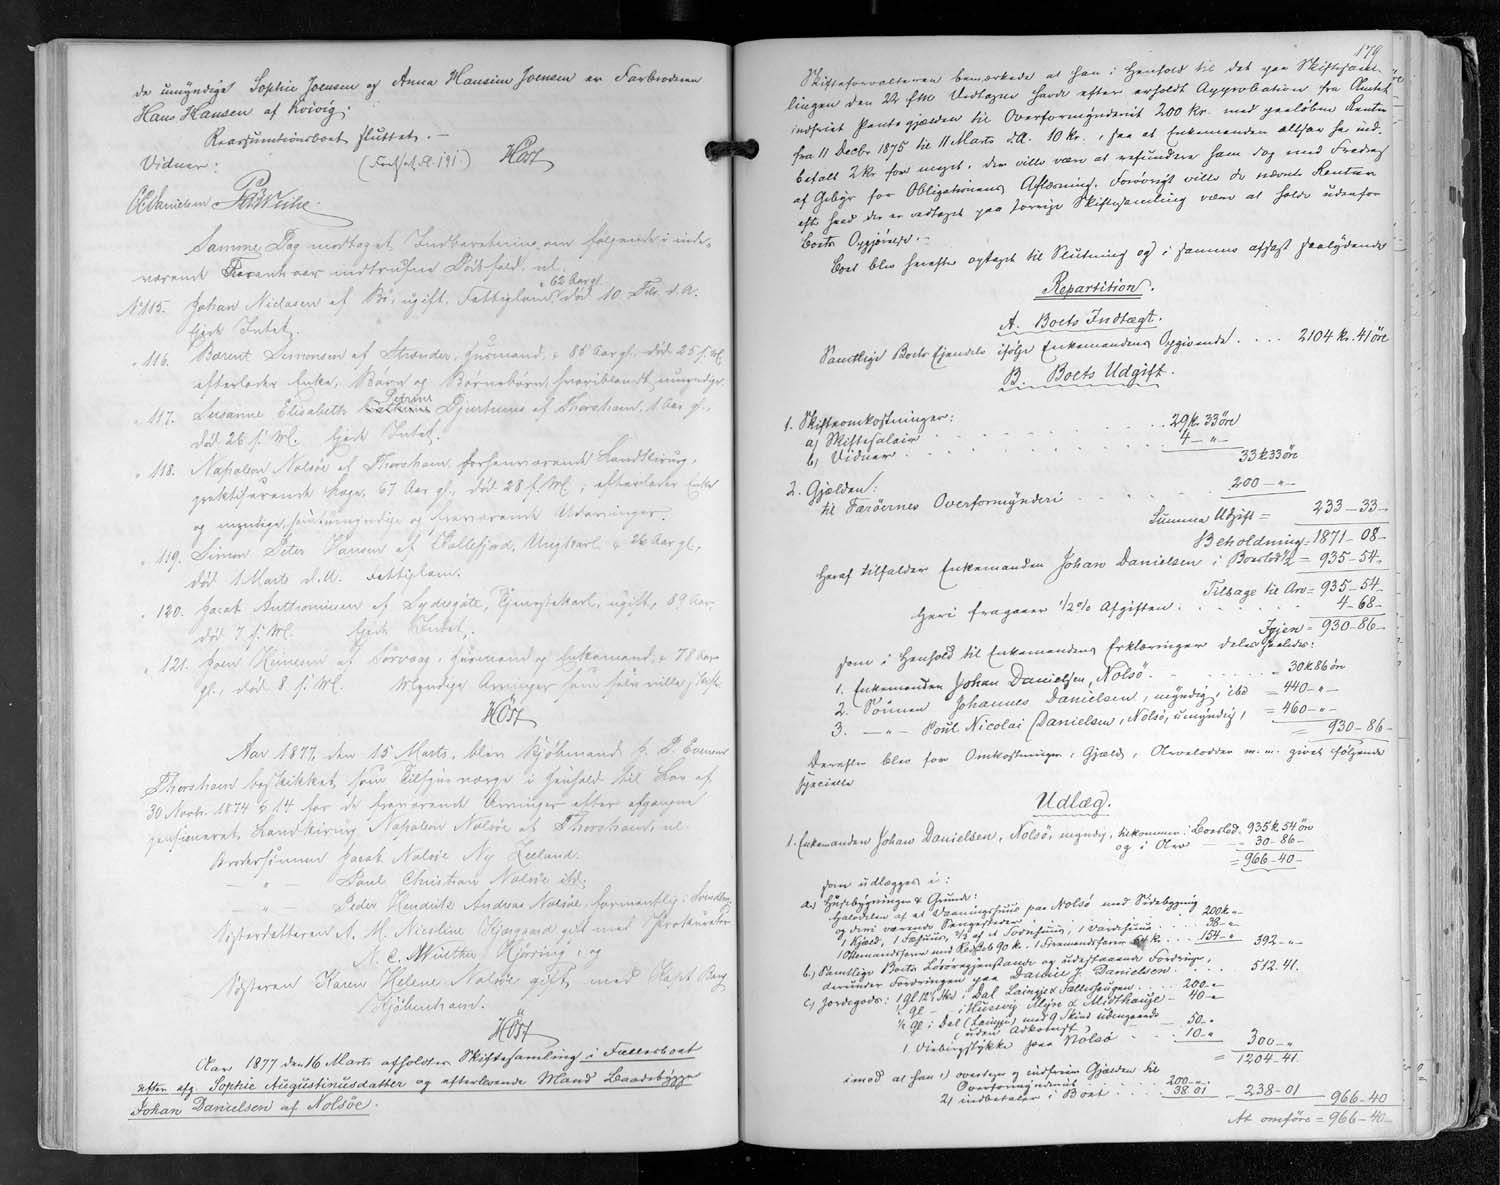 de umyndige Sophie Joensen og Anna Hansine Joensen er Farbroderen
Hans Hansen af Kvivig;
Reassumtionsboet sluttet. —
Vidner: (Forts. A. 191.) Höst
Samme Dag modtaget Indberetning om følgende i inde-
værende Kvartal indtrufne Dødsfald, nl.
No 115. Johan Niclasen af Bö, ugift, Fattiglem, 62 Aar gl. død 10 Febr. d. A.
Ejede Intet.
" 116. Barent Simonsen af Strænder, Huusmand, 85 Aar gl. død 25 f. M.
efterlader Enke, Børn og Børnebørn, hvoriblandt umyndige.
" 117. Susanne Elisabeth Petrine Djurhuus af Thorshavn, 1 Aar gl.,
død 26 f. M. Ejede Intet.
" 118. Napoleon Nolsøe af Thorshavn, forhenværende Landkirurg,
praktiserende Læge, 67 Aar gl., død 28 f. M.; efterlader Enke
og myndige, umyndige og fraværende Udarvinger.
" 119. Simon Peter Hansen af Kollefjord, Ungkarl, 26 Aar gl.,
død 1 Marts d. A. Fattiglem.
" 120. Jacob Anthoniusen af Sydregöte, Tjenestekarl, ugift, 89 Aar,
død 7 f. M. Ejede Intet.
" 121. Joen Heinesen af Sörvaag, Huusmand og Enkemand, 78 Aar
gl., død 8 f. M. Myndige Arvinger som selv ville skifte.
Höst
Aar 1877, den 15 Marts, blev Kjøbmand Evensen
Thorshavn beskikket som Tilsynsværge i Henhold til Lov af
30 Novbr. 1874 § 14 for de fraværende Arvinger efter afgangne
pensioneret Landkirurg Napoleon Nolsøe af Thorshavn, nl.
Brodersønnen Jacob Nolsøe Ny Zeeland.
— " — Poul Christian Nolsøe ibd;
— " — Peder Hendrik Andreas Nolsøe, formentlig i Svendborg
Søsterdatteren A. M. Nicoline Kjærgaard gift med Prokurator
Hjørring, og
Søsteren Karen Helene Nolsøe gift med Kapt Bang
Kjöbenhavn.
Höst
Aar 1877 den 16 Marts afholdtes Skiftesamling i Fællesboet
efter afg. Sophie Augustinusdatter og efterlevende Mand Baadebygger
Johan Danielsen af Nolsöe.
179
Skifteforvalteren bemærkede at han i Henhold til det paa Skiftesam-
lingen den 22 f. M. Vedtagne havde efter erholdt Approbation fra Amtet
indfriet Pantegjælden til Overformynderiet 200 Kr. med paaløbne Renter
fra 11 Decbr 1875 til 11 Marts d. A. 10 Kr., saa at Enkemanden altsaa har ind-
betalt 2 Kr for meget, der ville være at refundere ham dog med Fradrag
af Gebyr for Obligationens Aflæsning. Forøvrigt ville de nævnte Renter
efter hvad der er vedtaget paa forrige Skiftesamling være at holde udenfor
Boets Opgjørelse. —
Boet blev herefter optaget til Slutning og i samme affast saalydende
Repartition.
A. Boets Indtægt.
Samtlige Boets Ejendele ifølge Enkemandens Opgivende . . . 2104 kr. 41 öre
B. Boets Udgift.
1. Skifteomkostninger:
a) Skiftesalair . . . 29 kr 33 öre
b) Vidner . . . 4 — " —
33 k 33 öre
2. Gjælden:
til Færöernes Overformynderi . . . 200 — " —
Summa Udgift = 233 — 33 —
Beholdning = 1871 — 08 —
Heraf tilfalder Enkemanden Johan Danielsen i Boeslod 1/2 = 935 — 54 —
Tilbage til Arv = 935 — 54 —
Heri fragaaer 1/2 % Afgiften . . . 4 — 68 —
Igjen = 930 — 86 —
som i Henhold til Enkemandens Erklæringer deles saaledes:
1. Enkemanden Johan Danielsen, Nolsö . . . 30 k 86 öre
2. Sønnen Johannes Danielsen, myndig, ibd = 440 — " —
3. — " — Poul Nicolai Danielsen, Nolsö, umyndig, = 460 — " —
= 930 — 86 —
Derefter blev for Omkostninger, Gjæld, Arvelodder m. m. givet følgende
specielle
Udlæg.
1. Enkemanden Johan Danielsen, Nolsö, myndig, tilkommer: Boeslod 935 k 54 öre
og i Arv — 30 — 86 —
= 966 — 40 —
som udlægges i:
a) Huusbygninger & Grunde:
Halvdelen af et Vaaningshuus paa Nolsö med Sidebygning
og deri værende Sengesteder . . . 200 k "
1 Hjeld, 1 Fæhuus, 1/2 af et Tornhuus, 1 Vandhuus . . . 38 — "
1 Ottemandsfarer med Redskab 90 k. 1 Firemandsfarer 64 k . . . 154 — " 392 — "
b) Samtlige Boets Løsöregjenstande og udestaaende Fordringer,
derunder Fordringen paa Daniel J. Danielsen . . . 512. 41.
c) Jordegods: 1 gl 12 1/2 Skd i Dal . . . 200 —
. . . 40 —
1/2 gl i Dal med 9 Skind udengaards
(uden Adkomst) . . . 50 "
1 Udebingstykke paa Nolsö . . . 10 " 300 — "
= 1204 — 41.
imod at han 1) overtager og indfrier Gjælden til
Overformynderiet . . . 200 — "
2) indbetaler i Boet . . . 38 01 — 238 — 01 — 966 — 40
At omföre = 966 — 40 —